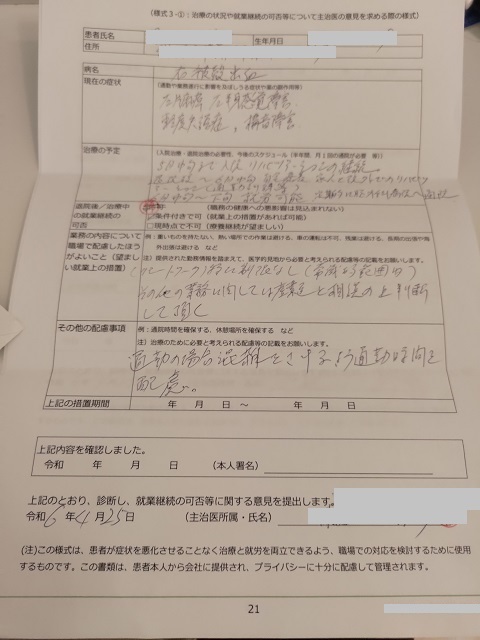 (様式3-①:治療の状況や就業継続の可否等について主治医の意見を求める際の様式)
患者氏名
生年月日
住所
病名
右被殻出血
現在の症状
(通勤や業務遂行に影響を及ぼしうる症状や薬の副作用等)
左片麻痺 左半身感覚障害
軽度失語症、構音障害
治療の予定
(入院治療・通院治療の必要性、今後のスケジュール(半年間、月1回の通院が必要 等))
5月中旬まで入院 リハビリテーションの継続
退院後 自宅療養
6月中旬〜下旬 就労可能
退院後/治療中の就業継続の可否
可 (職務の健康への悪影響は見込まれない)
□条件付きで可(就業上の措置があれば可能)
□現時点で不可(療養継続が望ましい)
業務の内容について職場で配慮したほうがよいこと(望ましい就業上の措置)
例:重いものを持たない、暑い場所での作業は避ける、車の運転は不可、残業は避ける、長期の出張や海外出張は避ける など
注)提供された勤務情報を踏まえて、医学的見地から必要と考えられる配慮等の記載をお願いします。
(テレワーク)特に制限なし(常識的な範囲内)
その他の業務に関しては産業医と相談の上判断
して頂く
その他の配慮事項
例:通院時間を確保する、休憩場所を確保する など
注)治療のために必要と考えられる配慮等の記載をお願いします。
通勤の場合混雑をさけるよう通勤時間を
配慮。
上記の措置期間
年 月 日 ~ 年 月 日
上記内容を確認しました。
令和 年 月 日 (本人署名)
上記のとおり、診断し、就業継続の可否等に関する意見を提出します。
令和6年4月25日 (主治医所属・氏名)
(注)この様式は、患者が症状を悪化させることなく治療と就労を両立できるよう、職場での対応を検討するために使用
するものです。この書類は、患者本人から会社に提供され、プライバシーに十分に配慮して管理されます。
21